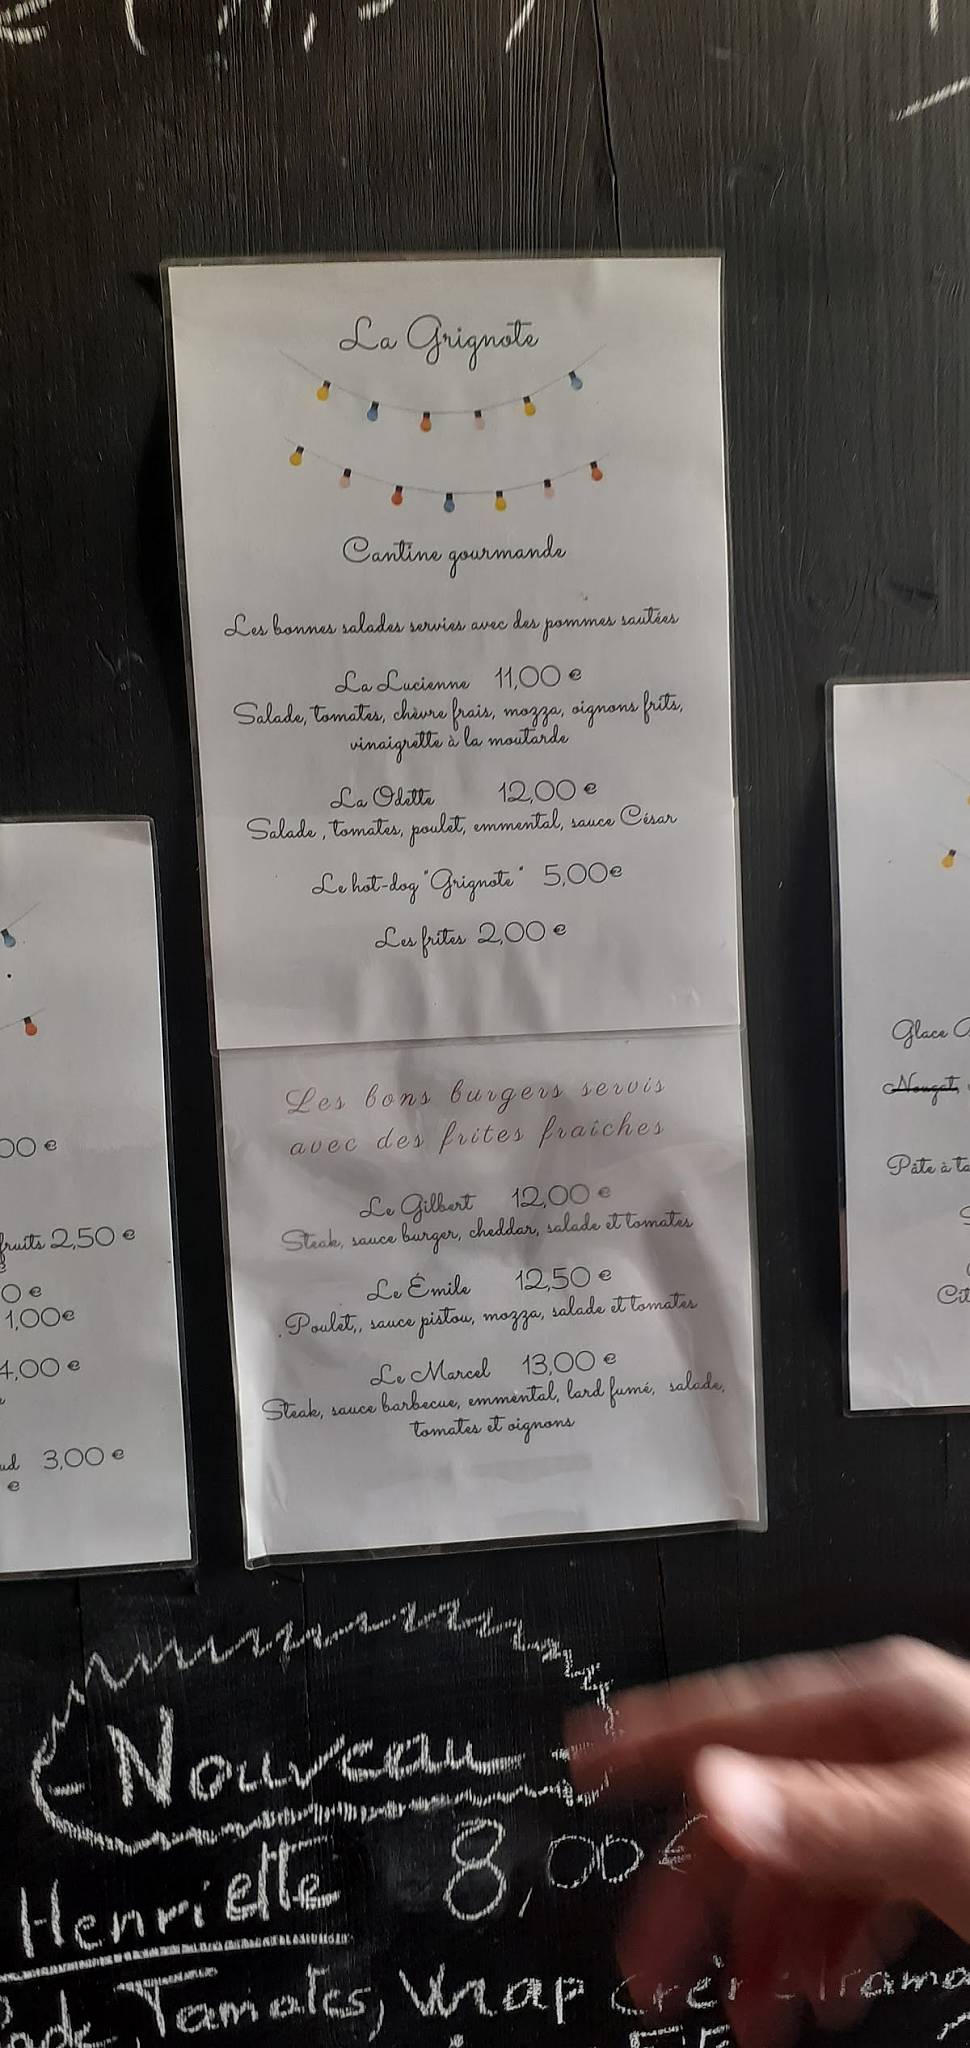 La Grignote
Cantine gourmande
Les bonnes salades servies avec des pommes sautées
La Lucienne 11,00 €
Salade, tomates, chèvre frais, mozza, oignons frits,
vinaigrette à la moutarde
La Odette 12,00 €
Salade , tomates, poulet, emmental, sauce César
Le hot-dog "Grignote" 5,00€
Les frites 2,00 €
Les bons burgers servis
avec des frites fraîches
Le Gilbert 12,00 €
Steak, sauce burger, cheddar, salade et tomates
Le Émile 12,50 €
. Poulet,, sauce pistou, mozza, salade et tomates
Le Marcel 13,00 €
Steak, sauce barbecue, emmental, lard fumé, salade,
tomates et oignons
00 €
fruits 2,50 €
0 €
1,00€
4,00 €
3,00 €
€
Glace
Nougat,
Pâte à ta
Cit
Nouveau
Henriette 8,00€
Tomates, Wrap